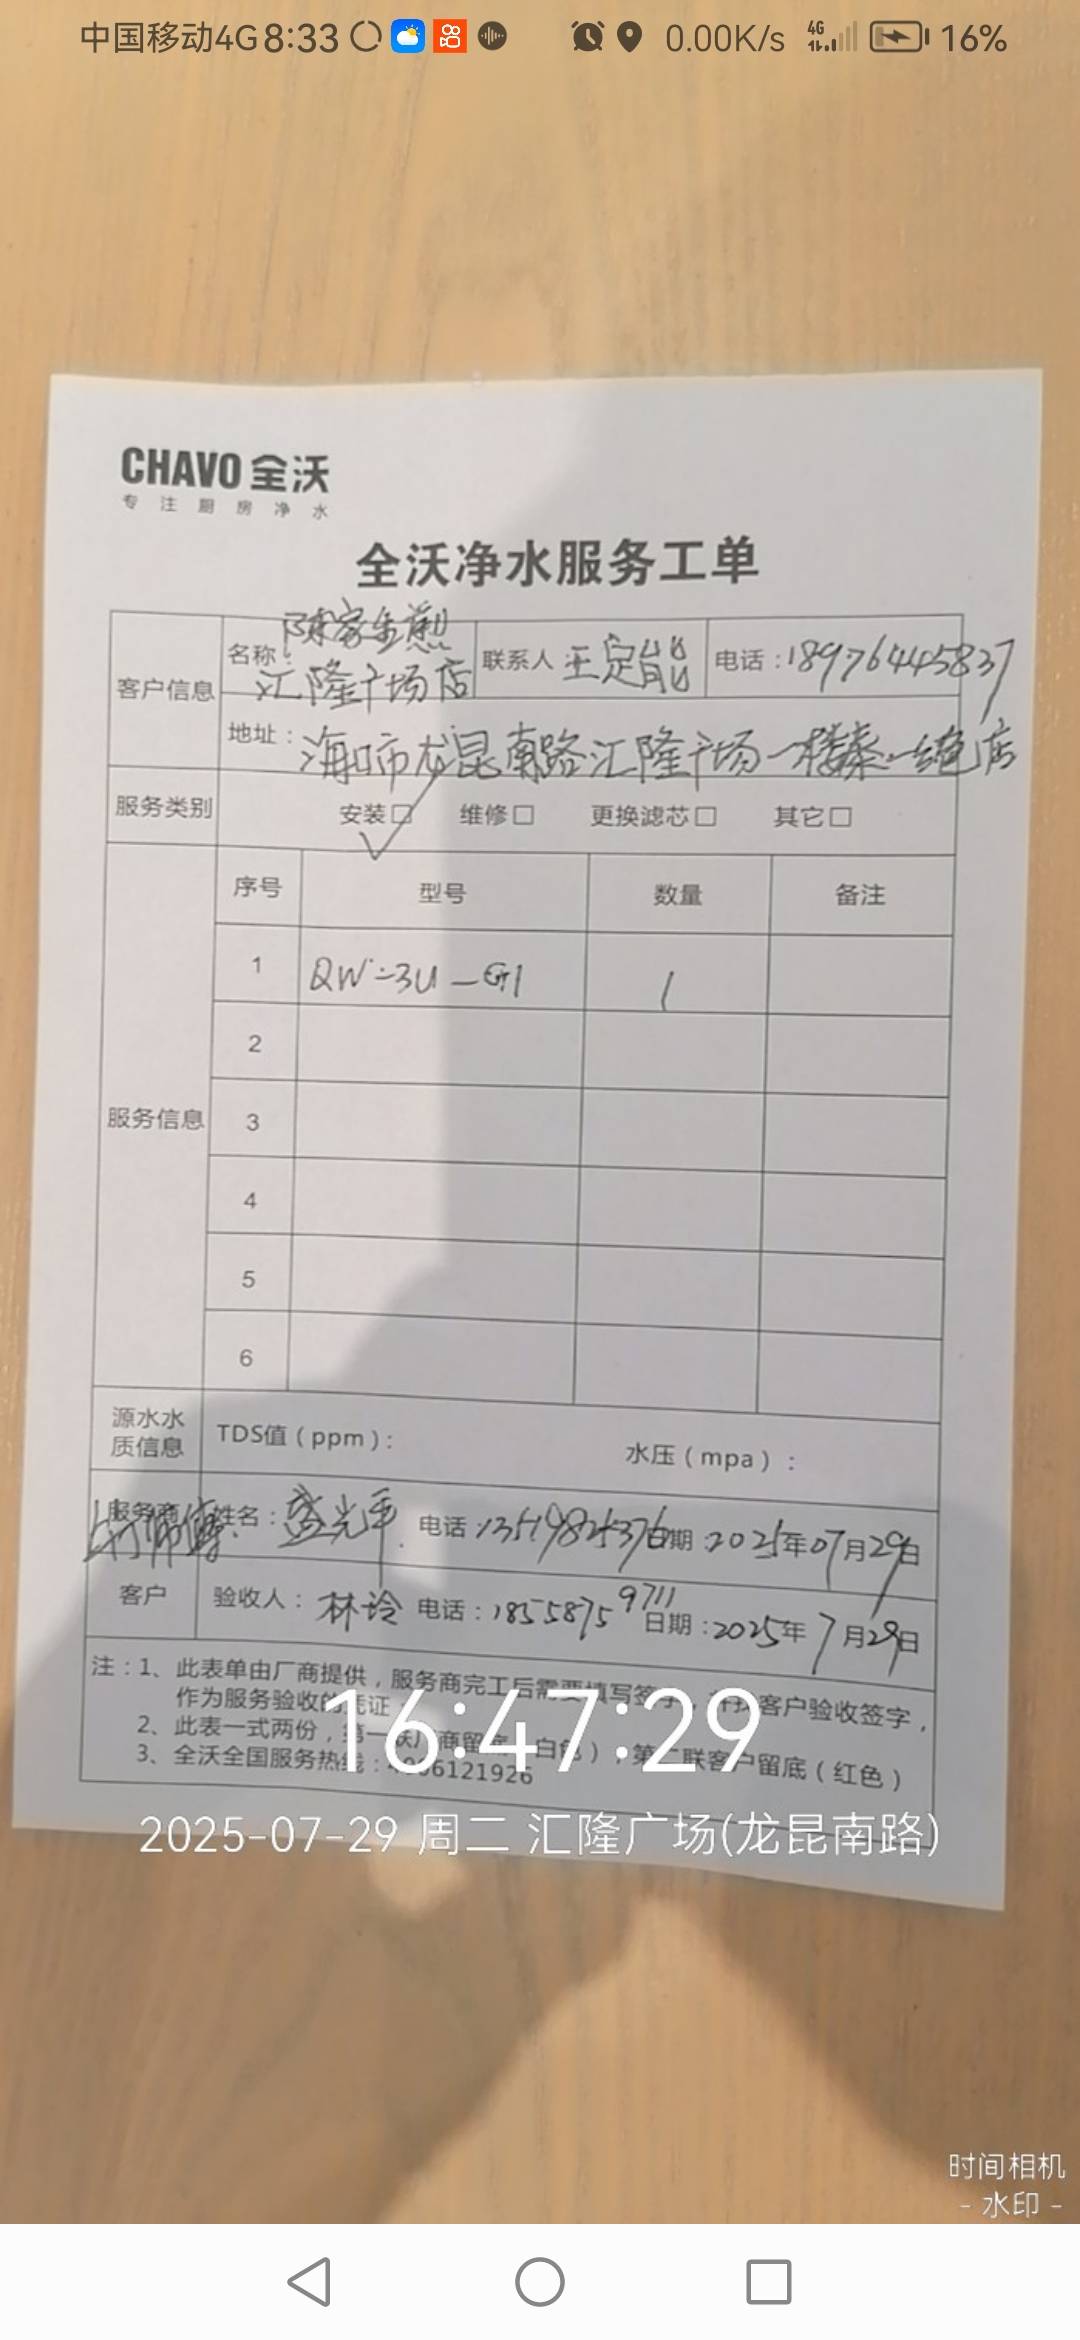 中国移动4G 8:33 0.00K/s 4G 16%
CHAVO 全沃
专注厨房净水
全沃净水服务工单
客户信息
名称：陈家
汇隆广场店
联系人 王定能
电话：18976445837
地址：海口市龙昆南路汇隆广场一楼秦 店
服务类别 安装□ 维修□ 更换滤芯□ 其它□
服务信息
序号 型号 数量 备注
1 QW-3U-G1 1
2
3
4
5
6
源水水质信息
TDS值（ppm）： 水压（mpa）：
服务商 姓名：盛光平 电话：13519825376 日期：2025年07月29日
客户 验收人：林玲 电话：18558759711 日期：2025年7月29日
注：1、此表单由厂商提供，服务商完工后需要填写签字，并找客户验收签字，
作为服务验收的凭证
2、此表一式两份，第一联厂商留底（白色），第二联客户留底（红色）
3、全沃全国服务热线：4006121926
16:47:29
2025-07-29 周二 汇隆广场(龙昆南路)
时间相机
- 水印 -